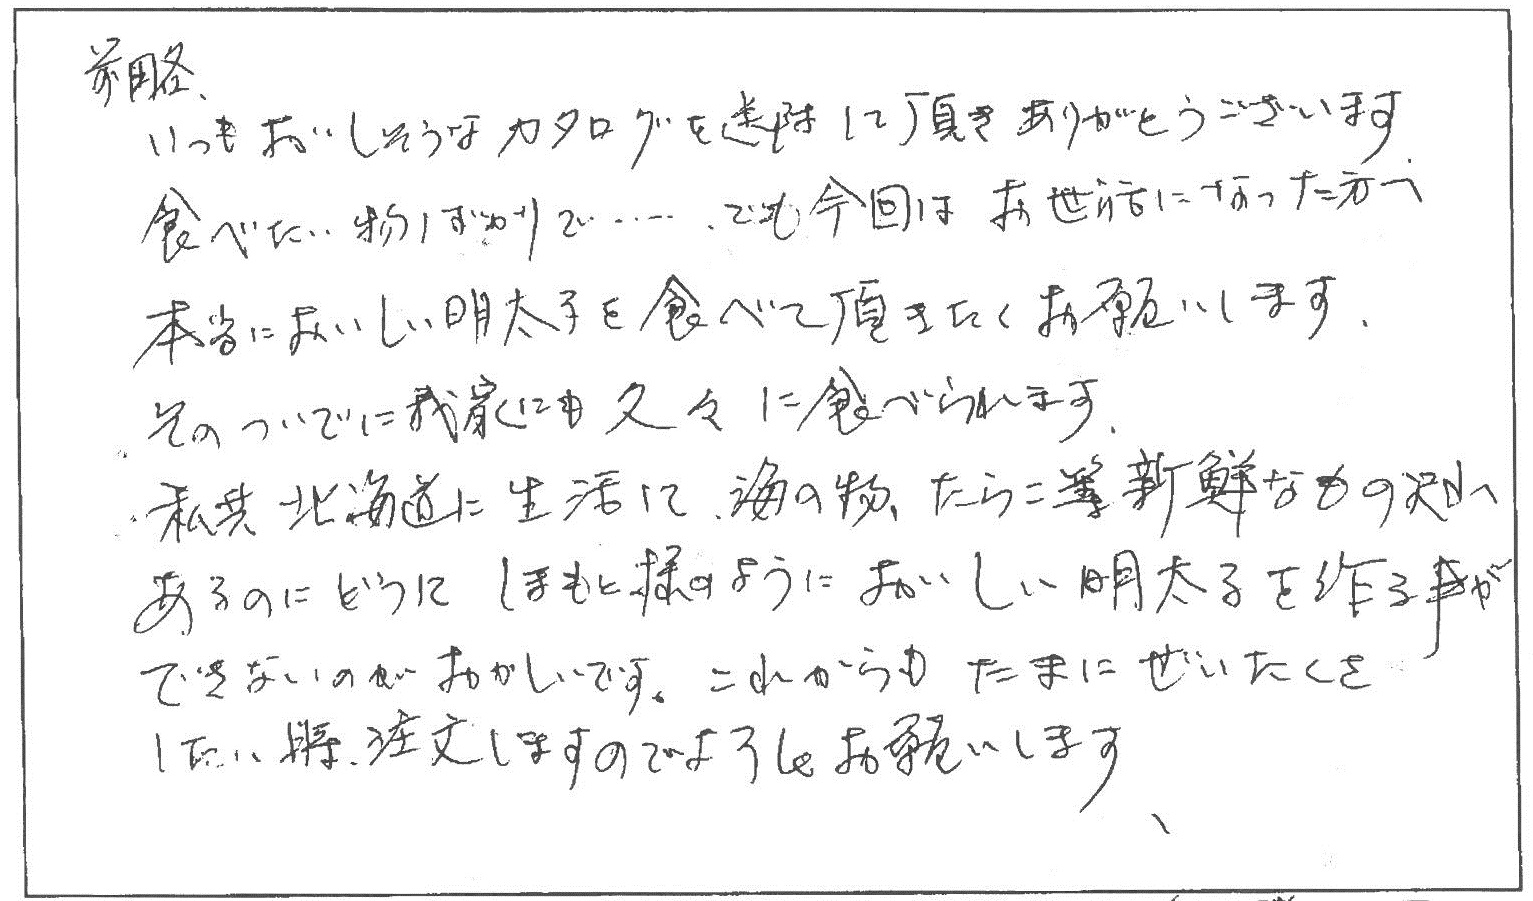 前略、
いつもおいしそうなカタログを送附して頂きありがとうございます
食べたい物ばかりで……、でも今回はお世話になった方へ
本当においしい明太子を食べて頂きたくお願いします、
そのついでに我家にも久々に食べられます、
私共北海道に生活して、海の物、たらこ等新鮮なもの沢山
あるのにどうして しまもと様のようにおいしい明太子を作る事が
できないのがおかしいです。これからもたまにぜいたくを
したい時、注文しますのでよろしくお願いします、